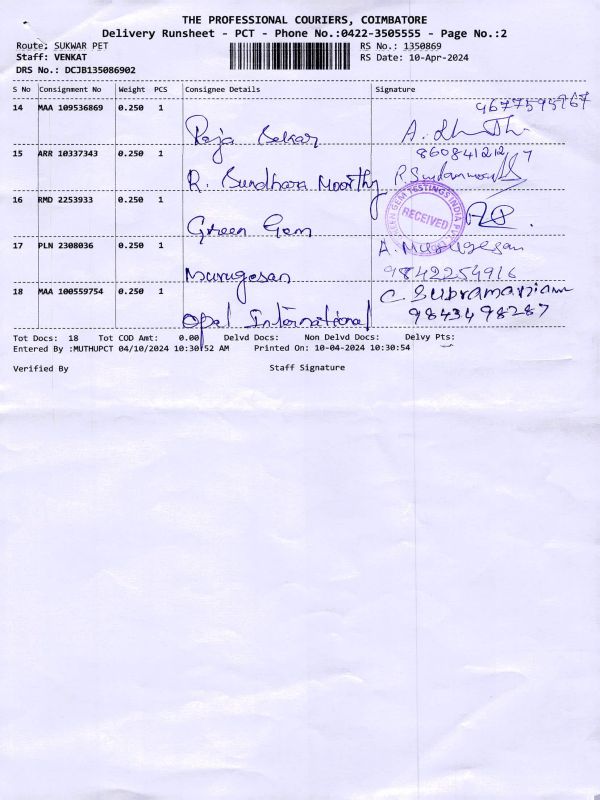 THE PROFESSIONAL COURIERS, COIMBATORE
Delivery Runsheet - PCT - Phone No.:0422-3505555 - Page No.:2
Route: SUKWAR PET
RS No.: 1350869
Staff: VENKAT
RS Date: 10-Apr-2024
DRS No.: DCJB135086902
S No Consignment No Weight PCS Consignee Details Signature
14 MAA 109536869 0.250 1
9677595967
Raja Sekar
15 ARR 10337343 0.250 1
8608412127
R. Sundhara Moorthy
16 RMD 2253933 0.250 1
GEM TESTINGS INDIA
RECEIVED
Green Gem
17 PLN 2308036 0.250 1
A. Murugesan
Murugesan
9842254916
18 MAA 100559754 0.250 1
C Subramaniam
Opal International
9843498287
Tot Docs: 18 Tot COD Amt: 0.00 Delvd Docs: Non Delvd Docs: Delvy Pts:
Entered By :MUTHUPCT 04/10/2024 10:30:52 AM Printed On: 10-04-2024 10:30:54
Verified By Staff Signature